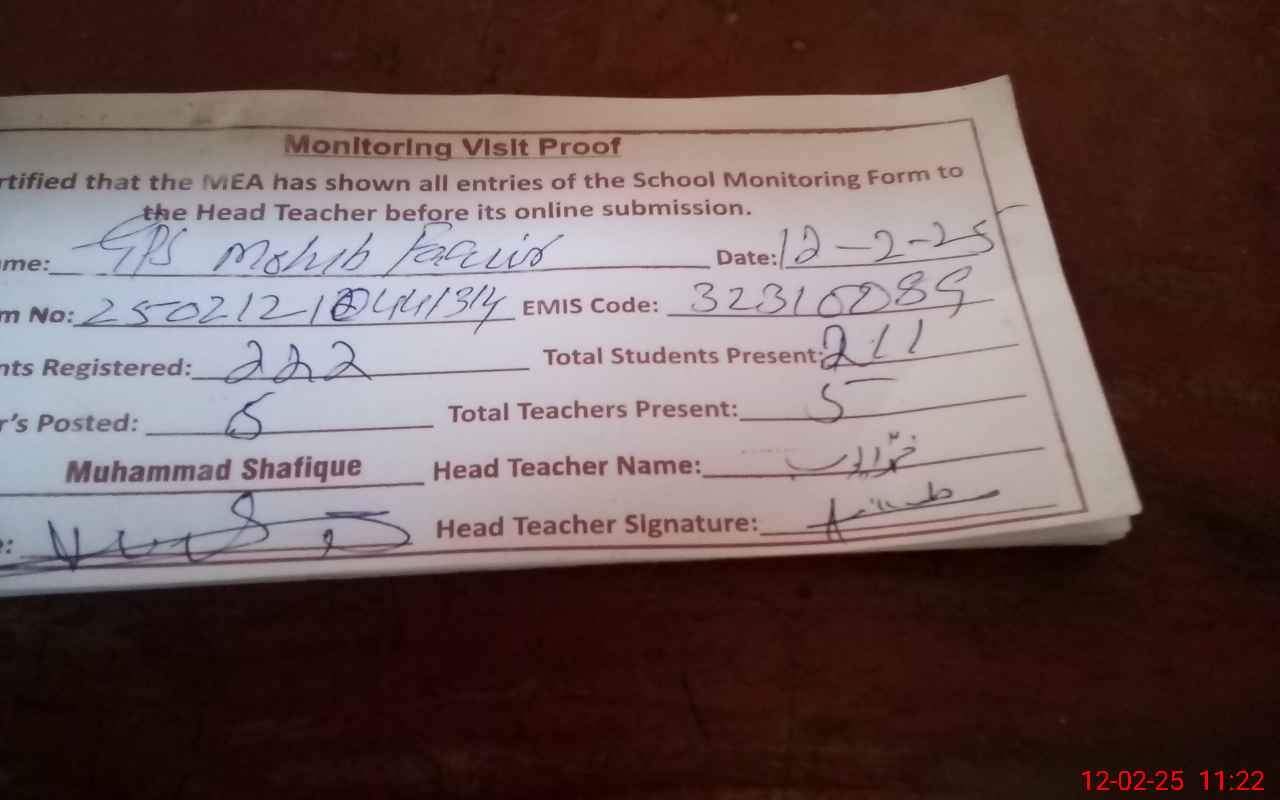 Monitoring Visit Proof
rtified that the MEA has shown all entries of the School Monitoring Form to
the Head Teacher before its online submission.
me: GPS Mohib Faquir Date: 12-2-25
m No: 25021210441314 EMIS Code: 32310089
nts Registered: 222 Total Students Present: 211
r's Posted: 5 Total Teachers Present: 5
Muhammad Shafique Head Teacher Name:
Head Teacher Signature:
12-02-25 11:22